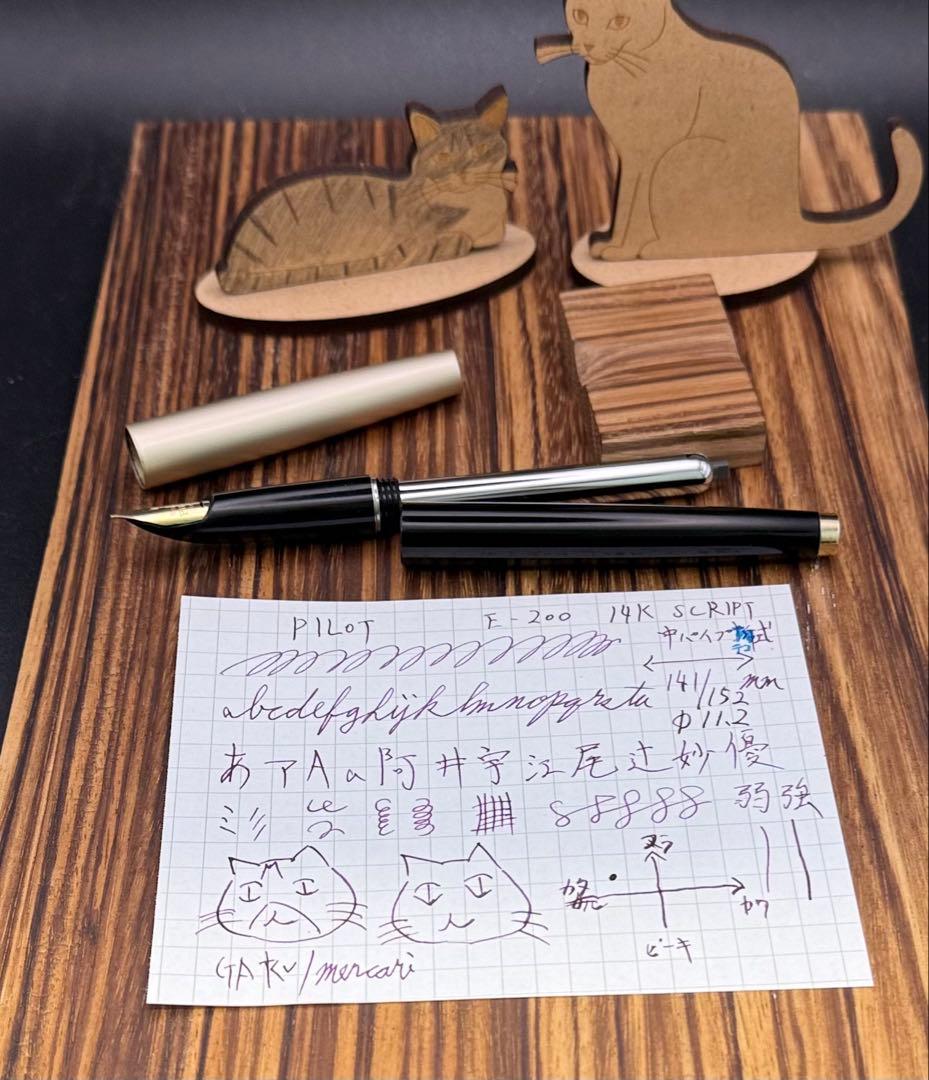 PILOT E-200 14K SCRIPT
中パイプ軸式
abcdefghijklmnopqrstu 141/152 mm
φ11.2
あアAa阿井宇江尾辻妙優
弱強
ヌラ
カタ
カワ
ビーキ
GAKU/mercari